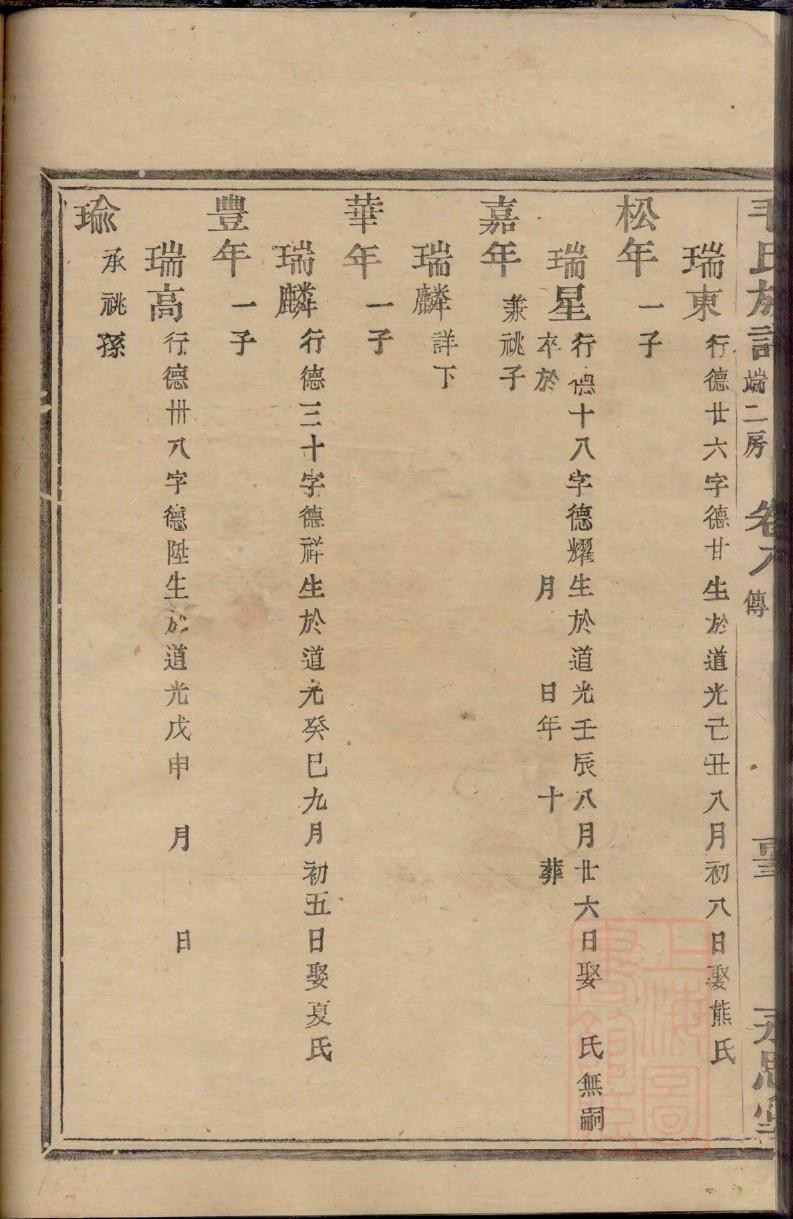 毛氏族譜 端二房 卷八 傳 永思堂
瑞東 行德廿六字德甘生於道光己丑八月初八日娶熊氏
松年 一子
瑞星 行德十八字德耀生於道光壬辰八月廿六日娶 氏無嗣
卒於 月 日年 十 葬
嘉年 兼祧子
瑞麟 詳下
華年 一子
瑞麟 行德三十字德祥生於道光癸巳九月初五日娶夏氏
豐年 一子
瑞高 行德卌八字德陞生於道光戊申 月 日
瑜 承祧孫
上海圖書館藏